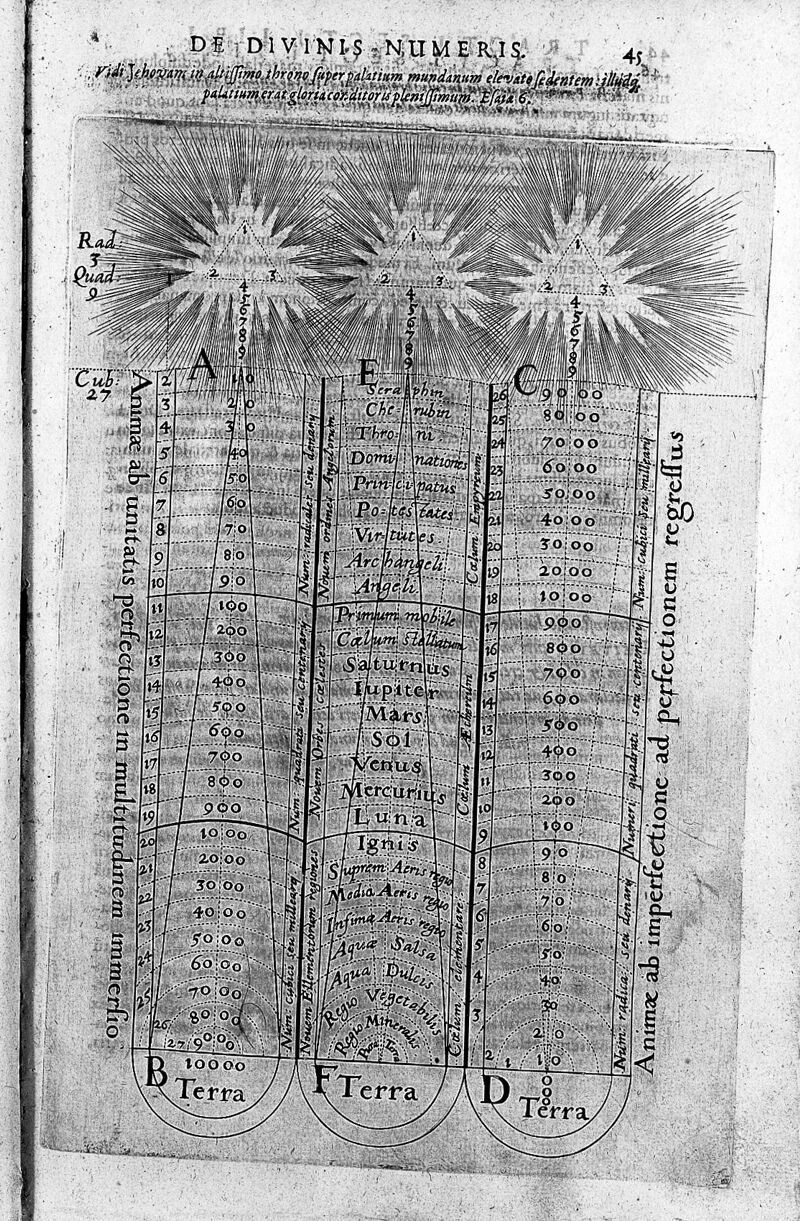 DE DIVINIS NUMERIS. 45
Vidi Jehovam in altissimo throno super palatium mundanum elevato sedentem: illudq́
palatium erat gloria conditoris plenissimum. Esaia 6.
Rad
3
Quad
9
Cub:
27
1
1
2 3
4
5
6
7
8
9
1
2 3
4
5
6
7
8
9
1
2 3
4
5
6
7
8
9
A
Animæ ab unitatis perfectione in multitudinem immersio
2 10
3 20
4 30
5 40
6 50
7 60
8 70
9 80
10 90
11 100
12 200
13 300
14 400
15 500
16 600
17 700
18 800
19 900
20 1000
21 2000
22 3000
23 4000
24 5000
25 6000
7000
26 8000
27 9000
10000
B Terra
Num: radicales seu denary
Num: quadrati seu centenary
Num: cubici seu milleary
E
Novem ordines Angelorum
Novem Orbes Cælestes
Novem Ellementorum regiones
Seraphin
Cherubin
Throni
Dominationes
Principatus
Potestates
Virtutes
Archangeli
Angeli
Primum mobile
Cœlum stellatum
Saturnus
Iupiter
Mars
Sol
Venus
Mercurius
Luna
Ignis
Suprem Aeris regio
Media Aeris regio
Infima Aeris regio
Aqua Salsa
Aqua Dulcis
Regio Vegetabilis
Regio Mineralis
Terra
F Terra
Cœlum Empyreum
Cœlum Æthereum
Cœlum elementare
C
26 9000
25 8000
24 7000
23 6000
22 5000
21 4000
20 3000
19 2000
18 1000
17 900
16 800
15 700
14 600
13 500
12 400
11 300
10 200
9 100
8 90
7 80
6 70
5 60
4 50
3 40
30
2 20
1 10
0
0
0
D Terra
Num: cubici seu milleary
Numeri quadrati seu centenary
Num: radica: seu denary
Animæ ab imperfectione ad perfectionem regressus